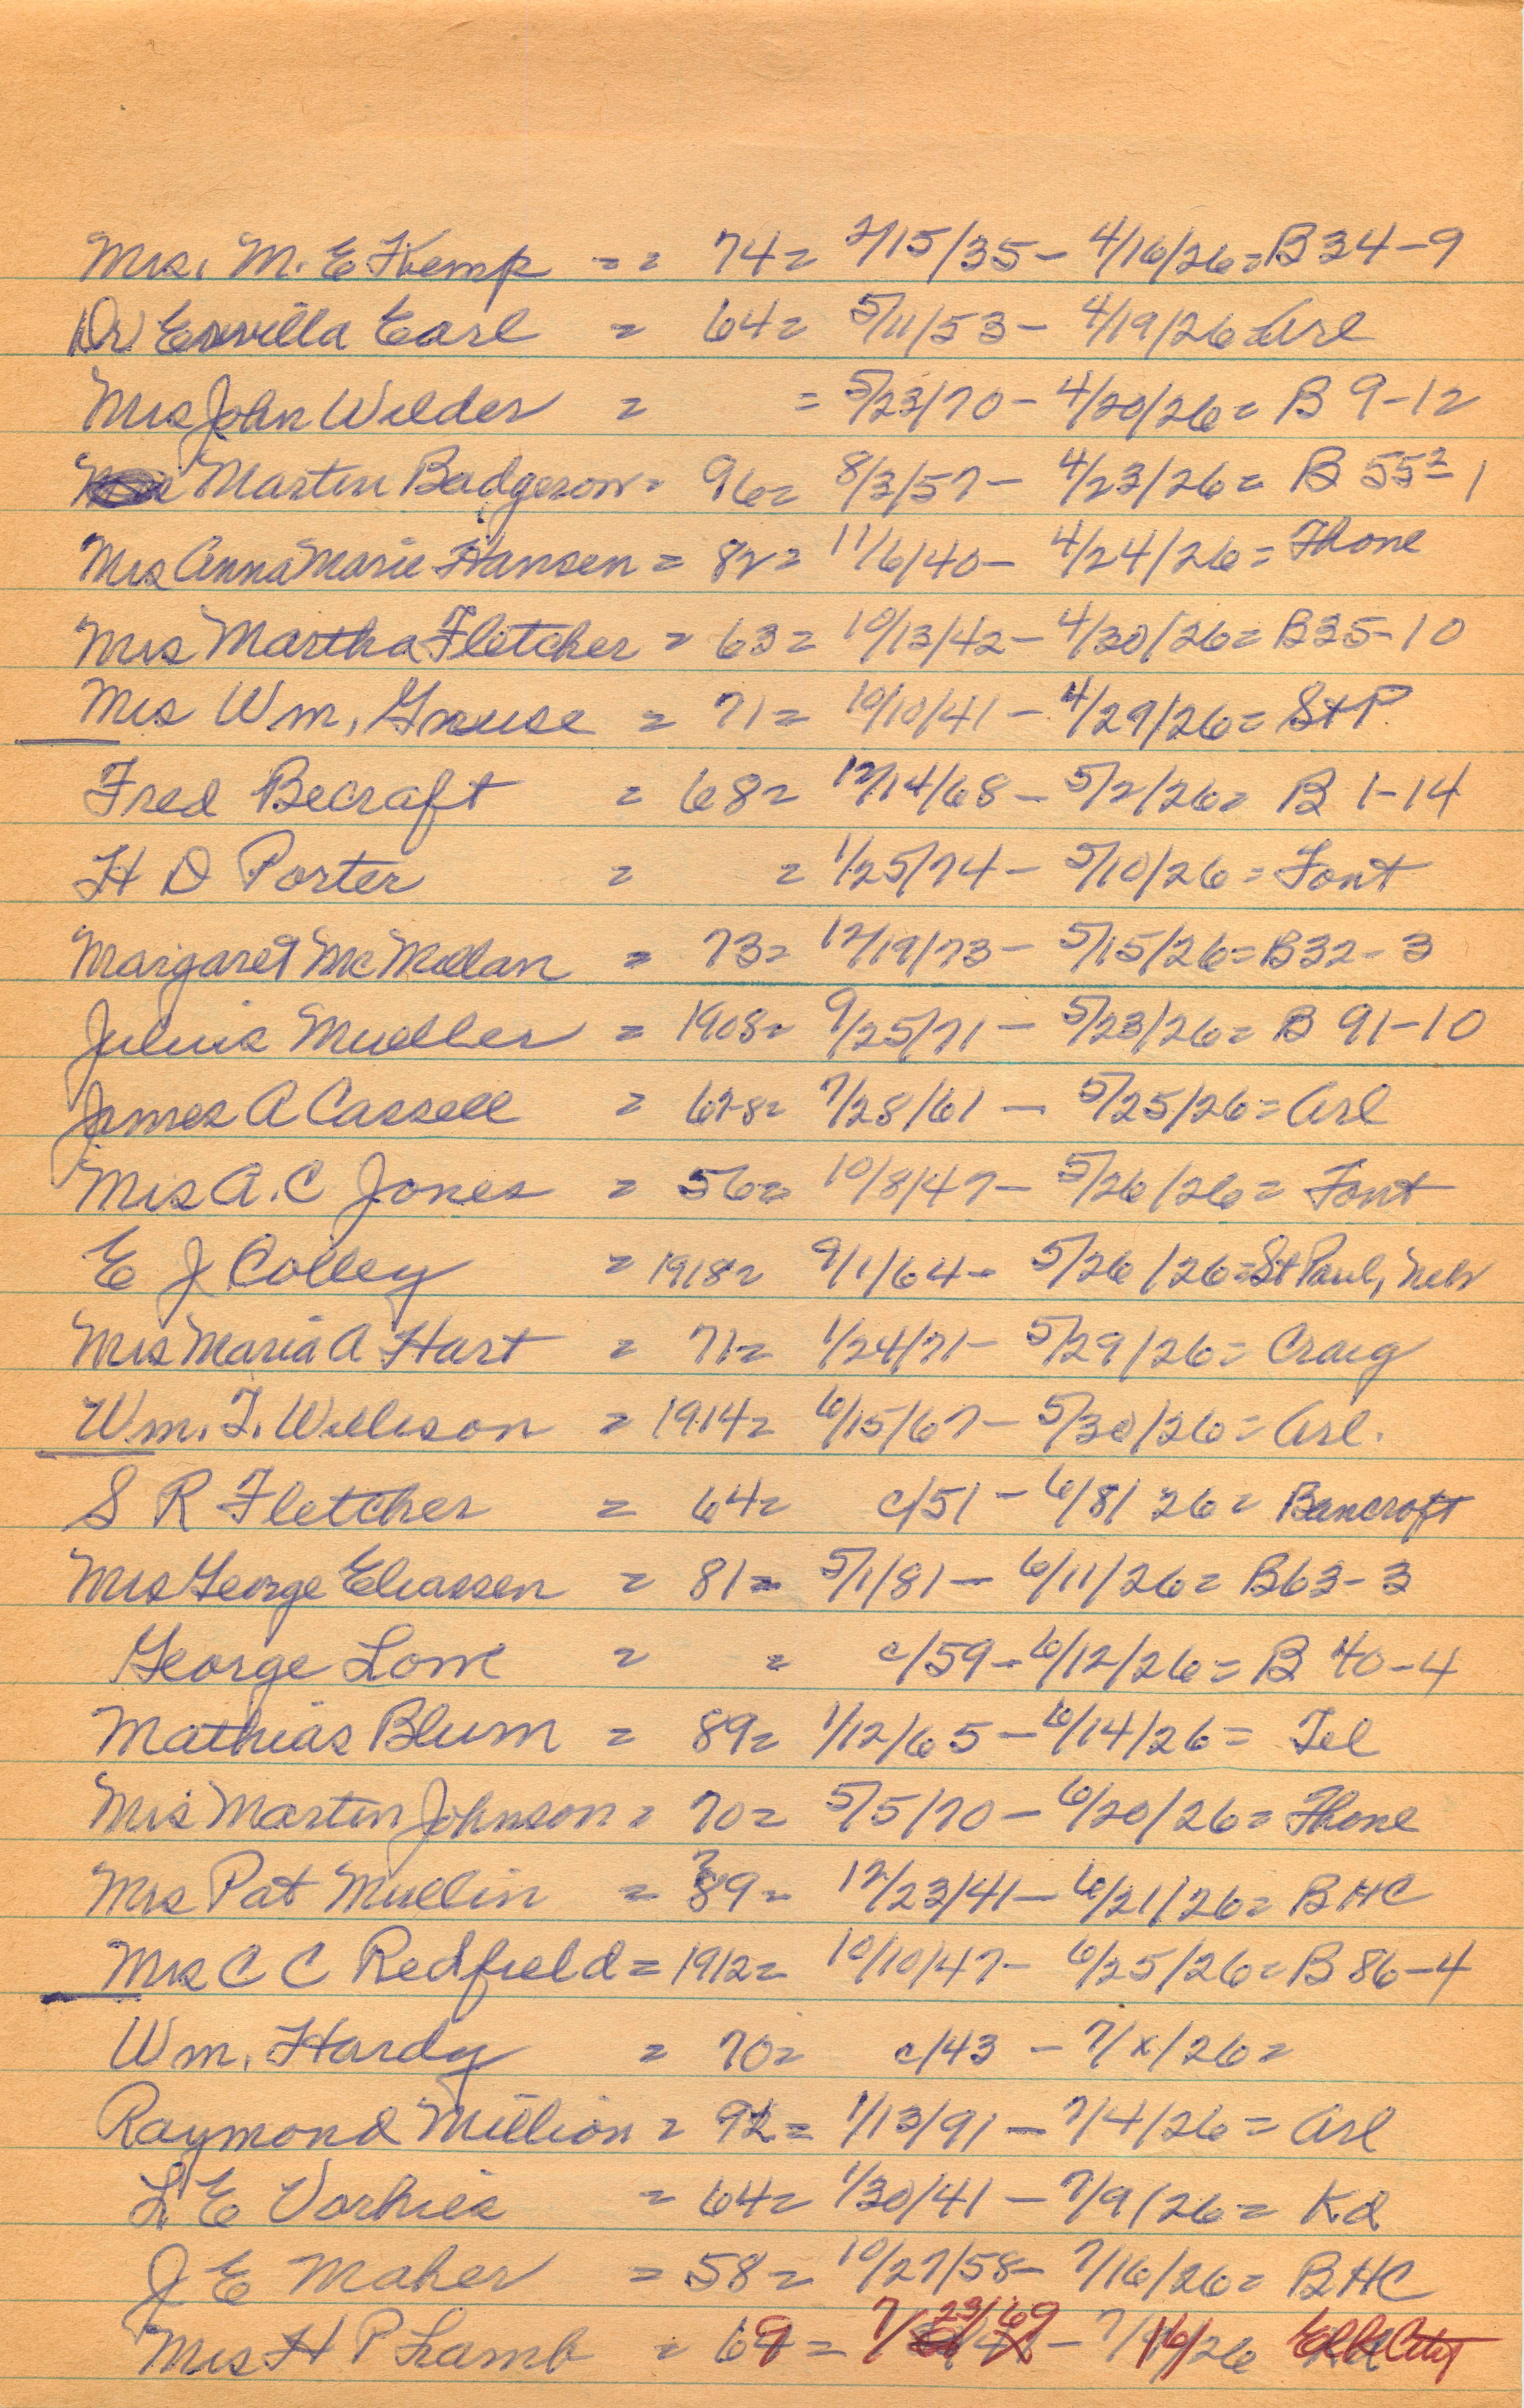 Mrs. M. E Kemp = = 74 = 2/15/35 - 4/16/26 = B 34-9
Dr Earl = 64 = 5/11/53 - 4/19/26 = Arl
Mrs John Wilder = = 5/23/70 - 4/20/26 = B 9-12
Martin Badgerow = 96 = 8/3/57 - 4/23/26 = B 55 1
Mrs Anna Marie Hansen = 82 = 11/6/40 - 4/24/26 =
Mrs Martha Fletcher = 63 = 10/13/42 - 4/30/26 = B35-10
Mrs Wm. = 71 = 10/10/41 - 4/29/26 = StP
Fred Becraft = 68 = 12/14/68 - 5/2/26 = B 1-14
H D Porter = = 1/25/74 - 5/10/26 = Font
Margaret McMillan = 73 = 12/19/73 - 5/15/26 = B32-3
Julius Mueller = 1908 = 9/25/71 - 5/23/26 = B 91-10
James A Cassell = 67-8 = 7/28/61 - 5/25/26 = Arl
Mrs A. C Jones = 56 = 10/8/47 - 5/26/26 = Font
E J Colley = 1918 = 9/1/64 - 5/26/26 = St Paul, Nebr
Mrs Maria A Hart = 71 = 1/24/71 - 5/29/26 = Craig
Wm. T. Willison = 1914 = 6/15/67 - 5/30/26 = Arl.
S R Fletcher = 64 = c/51 - 6/8/26 = Bancroft
Mrs George Eliassen = 81 = 5/1/81 - 6/11/26 = B63-3
George = = c/59 - 6/12/26 = B 40-4
Mathias Blum = 89 = 1/12/65 - 6/14/26 = Tel
Mrs Martin Johnson = 70 = 5/5/70 - 6/20/26 =
Mrs Pat Mullin = 89 = 12/23/41 - 6/21/26 = BHC
Mrs C C Redfield = 1912 = 10/10/47 - 6/25/26 = B 86-4
Wm. Hardy = 70 = c/43 - 7/x/26 =
Raymond Million = 92 = 1/13/91 - 7/4/26 = Arl
L E Vorhies = 64 = 1/30/41 - 7/9/26 = Kd
J E Maher = 58 = 10/27/58 - 7/16/26 = BHC
Mrs H P Lamb = 69 = 7/23/69 - 7/16/26 City